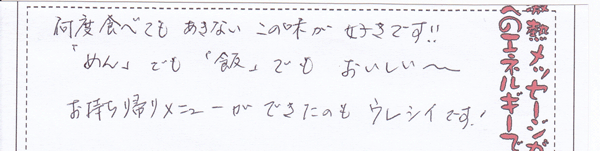 何度食べても あきない この味が 好きです!!
「めん」でも「飯」でも おいしい〜
お持ち帰りメニューができたのも ウレシイです!
熱メッセージが
へのエネルギーで